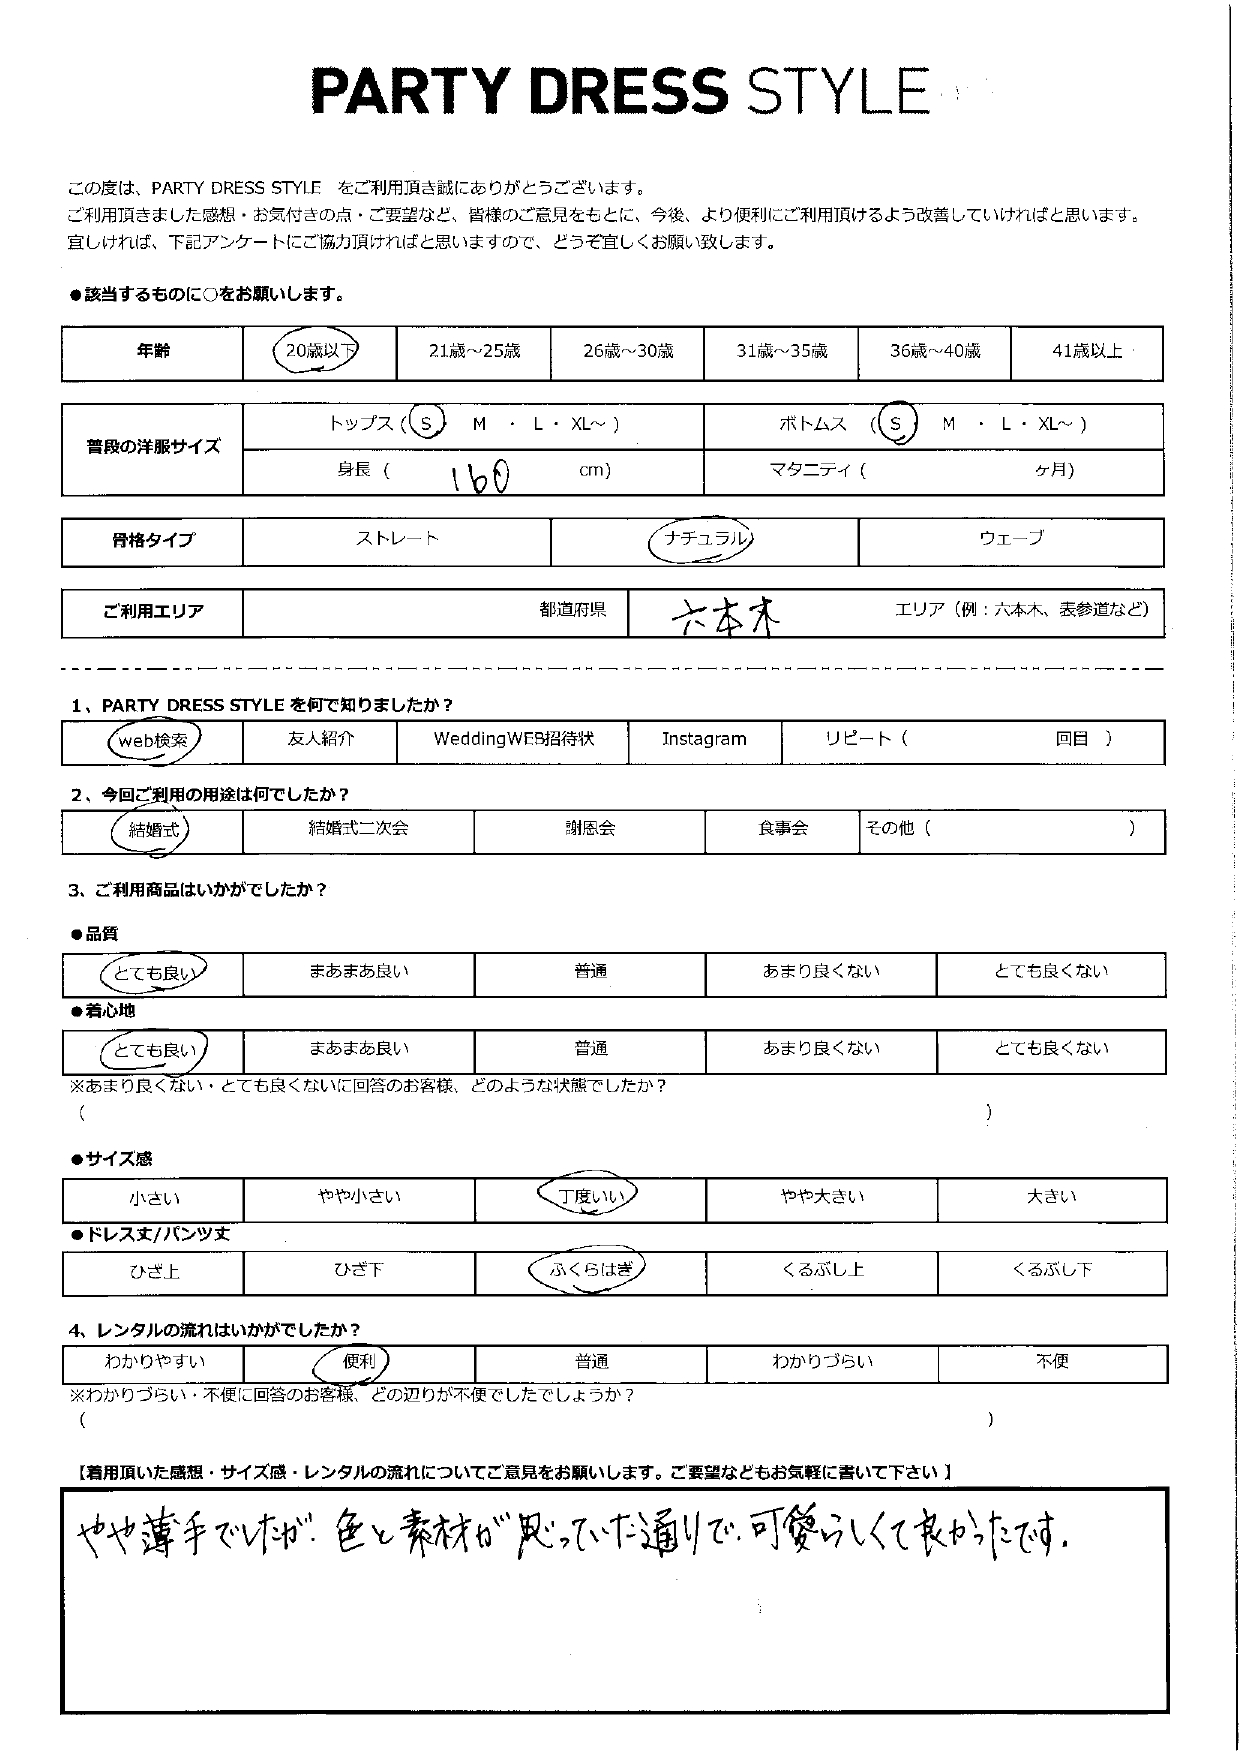 PARTY DRESS STYLE
この度は、PARTY DRESS STYLE をご利用頂き誠にありがとうございます。
ご利用頂きました感想・お気付きの点・ご要望など、皆様のご意見をもとに、今後、より便利にご利用頂けるよう改善していければと思います。
宜しければ、下記アンケートにご協力頂ければと思いますので、どうぞ宜しくお願い致します。
●該当するものに○をお願いします。
年齢 20歳以下 21歳～25歳 26歳～30歳 31歳～35歳 36歳～40歳 41歳以上
普段の洋服サイズ トップス ( S M ・ L ・ XL～ ) ボトムス ( S M ・ L ・ XL～ )
身長 ( 160 cm) マタニティ ( ヶ月)
骨格タイプ ストレート ナチュラル ウェーブ
ご利用エリア 都道府県 六本木 エリア（例：六本木、表参道など）
1、PARTY DRESS STYLE を何で知りましたか？
web検索 友人紹介 WeddingWEB招待状 Instagram リピート ( 回目 )
2、今回ご利用の用途は何でしたか？
結婚式 結婚式二次会 謝恩会 食事会 その他 ( )
3、ご利用商品はいかがでしたか？
●品質
とても良い まあまあ良い 普通 あまり良くない とても良くない
●着心地
とても良い まあまあ良い 普通 あまり良くない とても良くない
※あまり良くない・とても良くないに回答のお客様、どのような状態でしたか？
( )
●サイズ感
小さい やや小さい 丁度いい やや大きい 大きい
●ドレス丈/パンツ丈
ひざ上 ひざ下 ふくらはぎ くるぶし上 くるぶし下
4、レンタルの流れはいかがでしたか？
わかりやすい 便利 普通 わかりづらい 不便
※わかりづらい・不便に回答のお客様、どの辺りが不便でしたでしょうか？
( )
【着用頂いた感想・サイズ感・レンタルの流れについてご意見をお願いします。ご要望などもお気軽に書いて下さい】
やや薄手でしたが、色と素材が思っていた通りで、可愛らしくて良かったです。